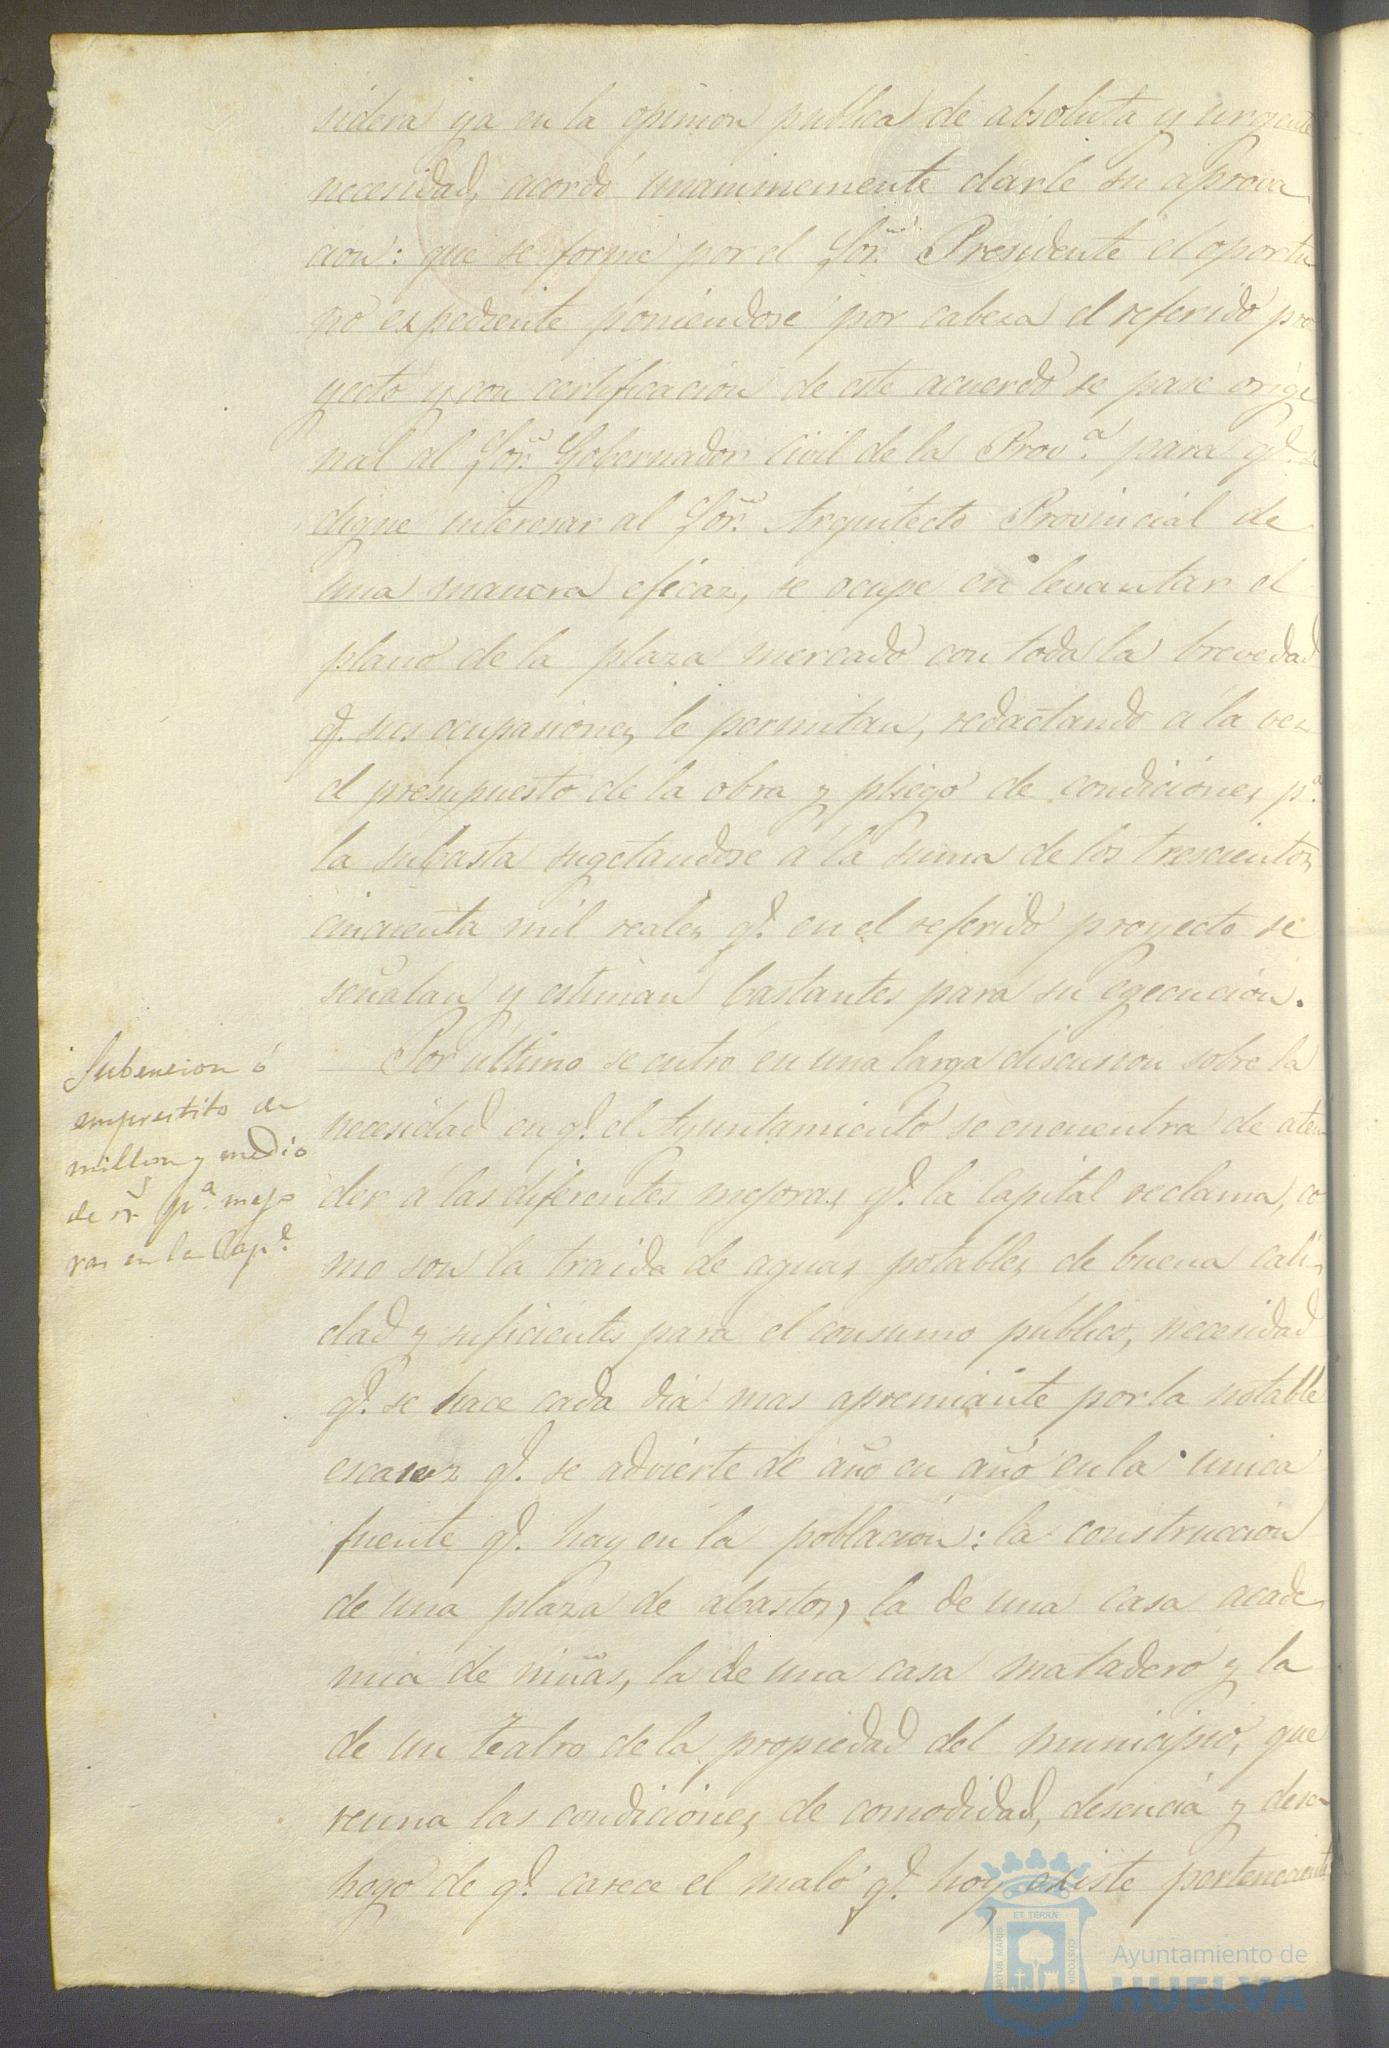 sidera ya en la opinion publica de absoluta y urgente
necesidad, acordó unanimemente darle su aprova
cion: que se forme por el Sor. Presidente el oportu
no expediente poniendose por cabeza el referido pro
yecto y con certificacion de este acuerdo se pase origi
nal al Sor. Gobernador Civil de la Prov.ª para q.e se
digne interesar al Sor. Arquitecto Provincial de
una manera eficaz, se ocupe en levantar el
plano de la plaza mercado con toda la brevedad
q.e sus ocupasiones le permitan, redactando á la vez
el presupuesto de la obra y pliego de condiciones p.ª
la subasta sugetandose á la suma de los trescientos
cincuenta mil reales q.e en el referido proyecto se
señalan y estiman bastantes para su egecucion.
Por último se entró en una larga discusion sobre la
necesidad en q.e el Ayuntamiento se encuentra de aten
der á las diferentes mejoras q.e la Capital reclama, co
mo son la traida de aguas potables de buena cali
dad y suficientes para el consumo público, necesidad
q.e se hace cada dia mas apremiante por la notable
escasez q.e se advierte de año en año en la unica
fuente q.e hay en la poblacion: la construccion
de una plaza de abastos, la de una casa acade
mia de niñas, la de una casa matadero y la
de un teatro de la propiedad del municipio, que
reuna las condiciones de comodidad, desencia y desa
hogo de q.e carece el malo q.e hoy existe perteneciente
Subencion ó
emprestito de
millon y medio
de r.s p.ª mejo
ras en la Cap.l
ET TERRÆ
PORTUS MARIS
CUSTODIA
Ayuntamiento de
HUELVA